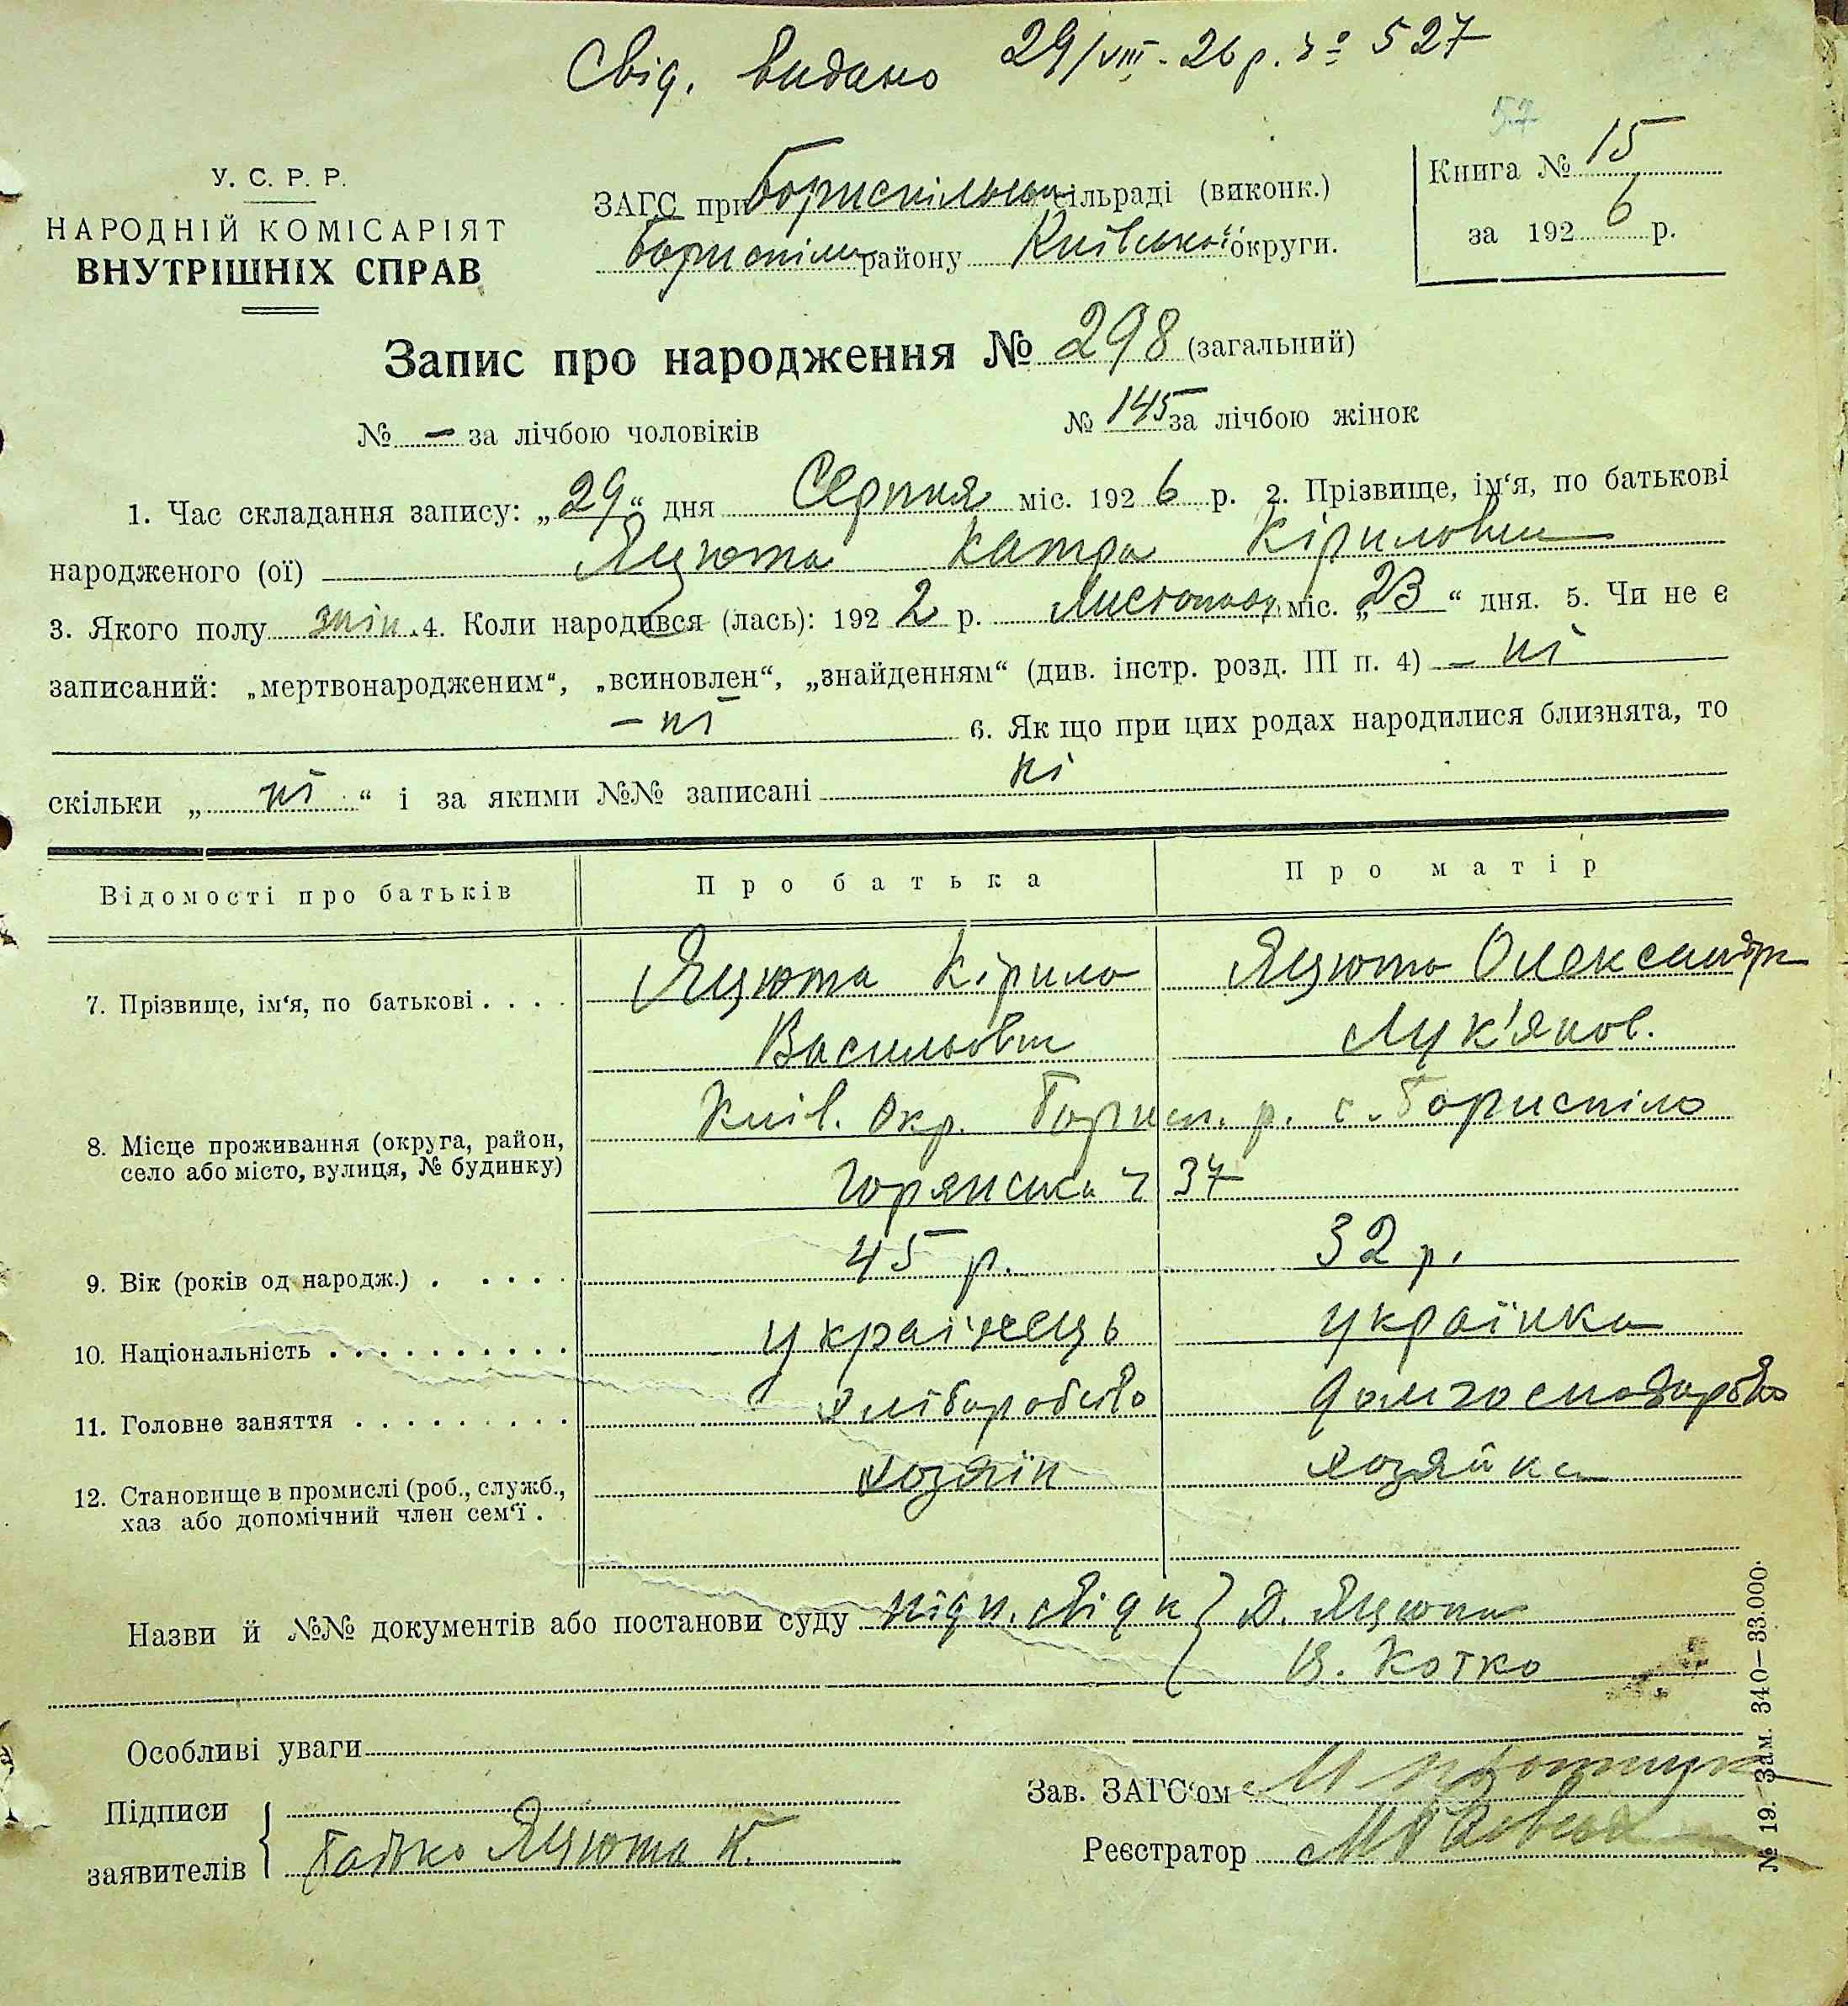 Свід. видано 29/VIII - 26 р. № 527
57
У. С. Р. Р.
НАРОДНІЙ КОМІСАРІЯТ
ВНУТРІШНІХ СПРАВ
ЗАГС при Бориспільськ сільраді (виконк.)
Бориспіль району Київської округи.
Книга № 15
за 1926 р.
Запис про народження № 298 (загальний)
№ — за лічбою чоловіків № 145 за лічбою жінок
1. Час складання запису: „29“ дня Серпня міс. 1926 р. 2. Прізвище, ім‘я, по батькові
народженого (ої) Яцюта Катра Кіриловни
3. Якого полу жін. 4. Коли народився (лась): 1922 р. Листопад міс. „23“ дня. 5. Чи не є
записаний: „мертвонародженим“, „всиновлен“, „знайденням“ (див. інстр. розд. III п. 4) – ні
– ні 6. Як що при цих родах народилися близнята, то
скільки „ ні “ і за якими №№ записані ні
Відомості про батьків Про батька Про матір
7. Прізвище, ім‘я, по батькові . . . . Яцюта Кірило Яцюта Олександр
Васильовн Лук'янов.
8. Місце проживання (округа, район, село або місто, вулиця, № будинку) Київ. Окр. Борисп. р. с. Бориспіль
Горянська ч 37
9. Вік (років од народж.) . . . . . 45 р. 32 р.
10. Національність . . . . . . . . . . українець українка
11. Головне заняття . . . . . . . . . хліборобство домгосподарство
12. Становище в промислі (роб., служб., хаз або допомічний член сем‘ї . хозяїн хозяйка
Назви й №№ документів або постанови суду підп. свідк } Д. Яцюти
В. Котко
Особливі уваги
Підписи
заявителів { Батько Яцюта К.
Зав. ЗАГС‘ом
Реєстратор
№ 19. Зам. 340—33.000.